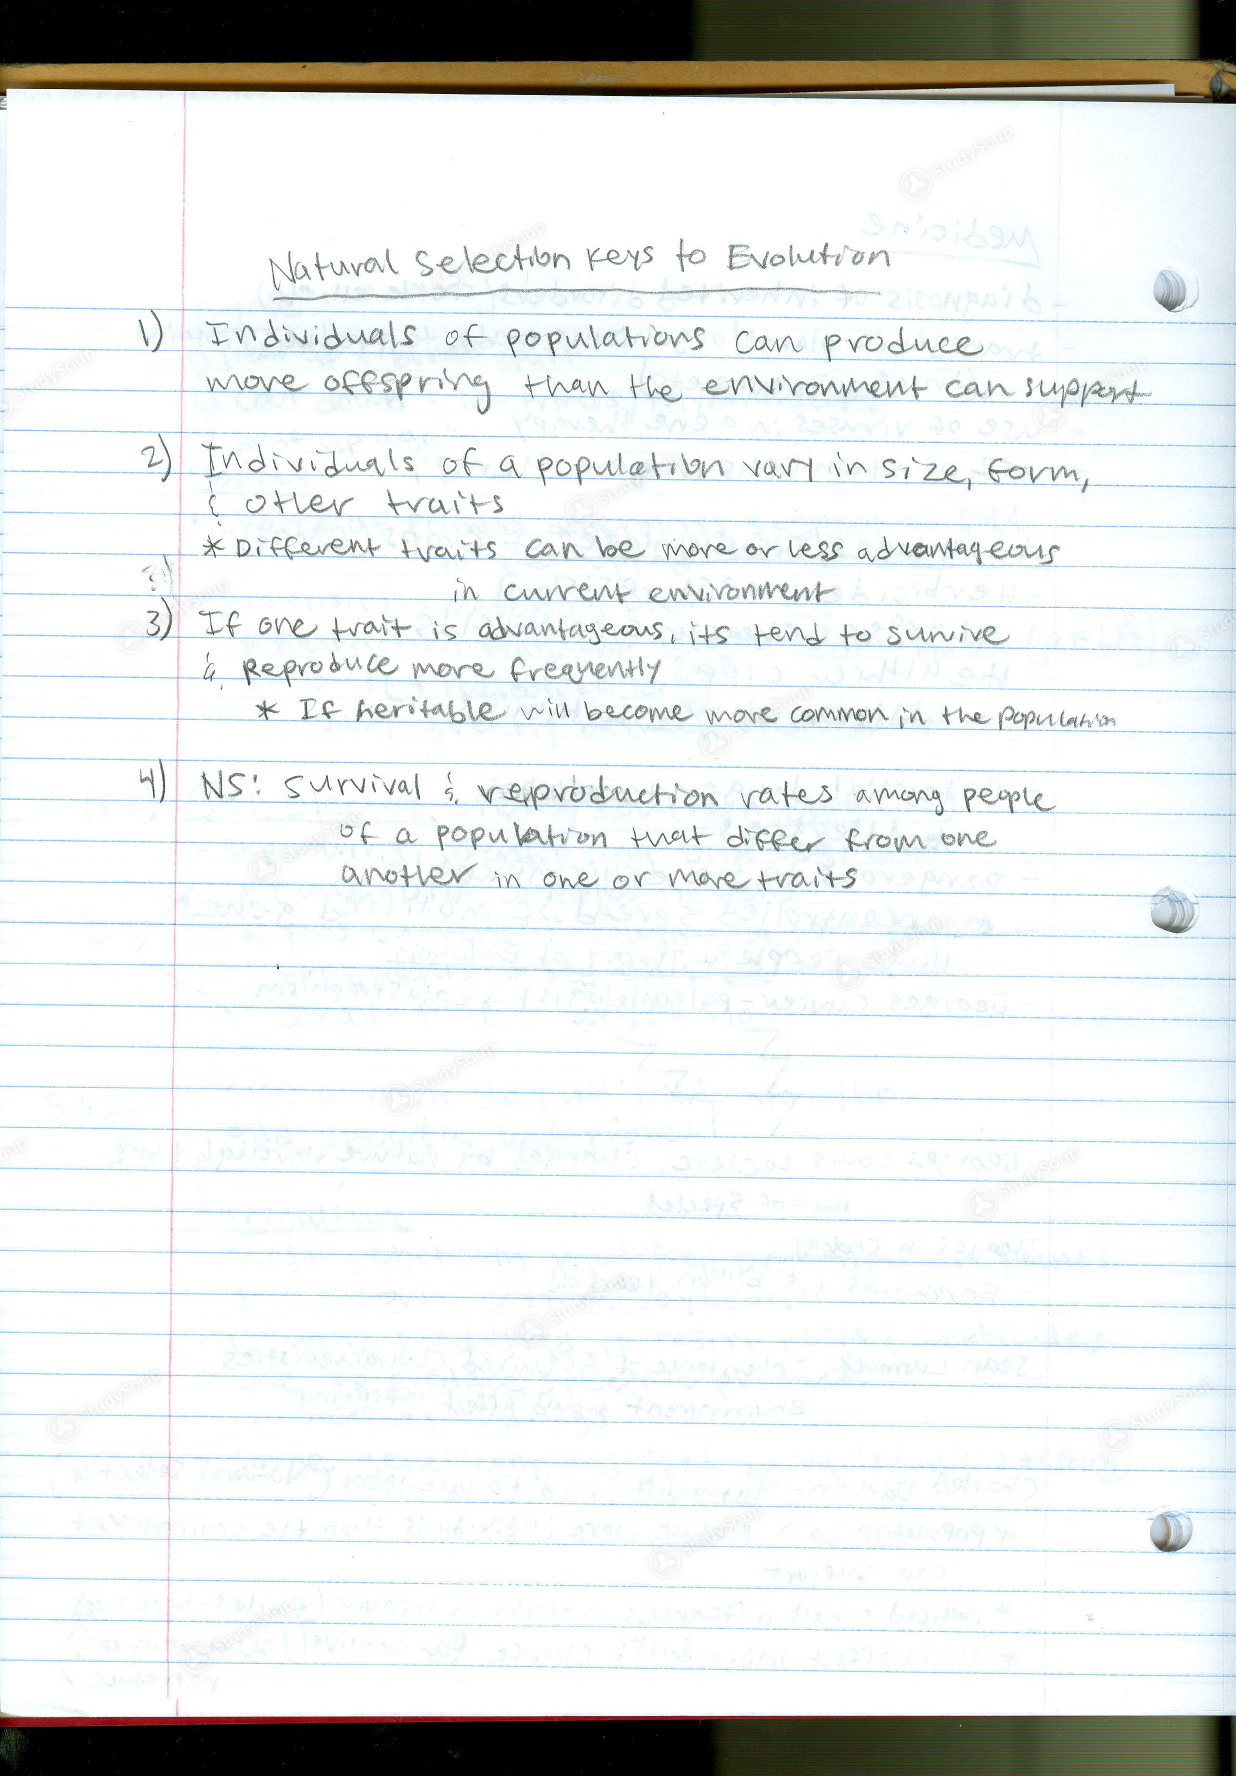 Natural Selection Keys to Evolution
1) Individuals of populations can produce
more offspring than the environment can support
2) Individuals of a population vary in size, form,
& other traits
* Different traits can be more or less advantageous
in current environment
3) If one trait is advantageous, its tend to survive
& Reproduce more frequently
* If heritable will become more common in the population
4) NS: survival & reproduction rates among people
of a population that differ from one
another in one or more traits
StudySoup